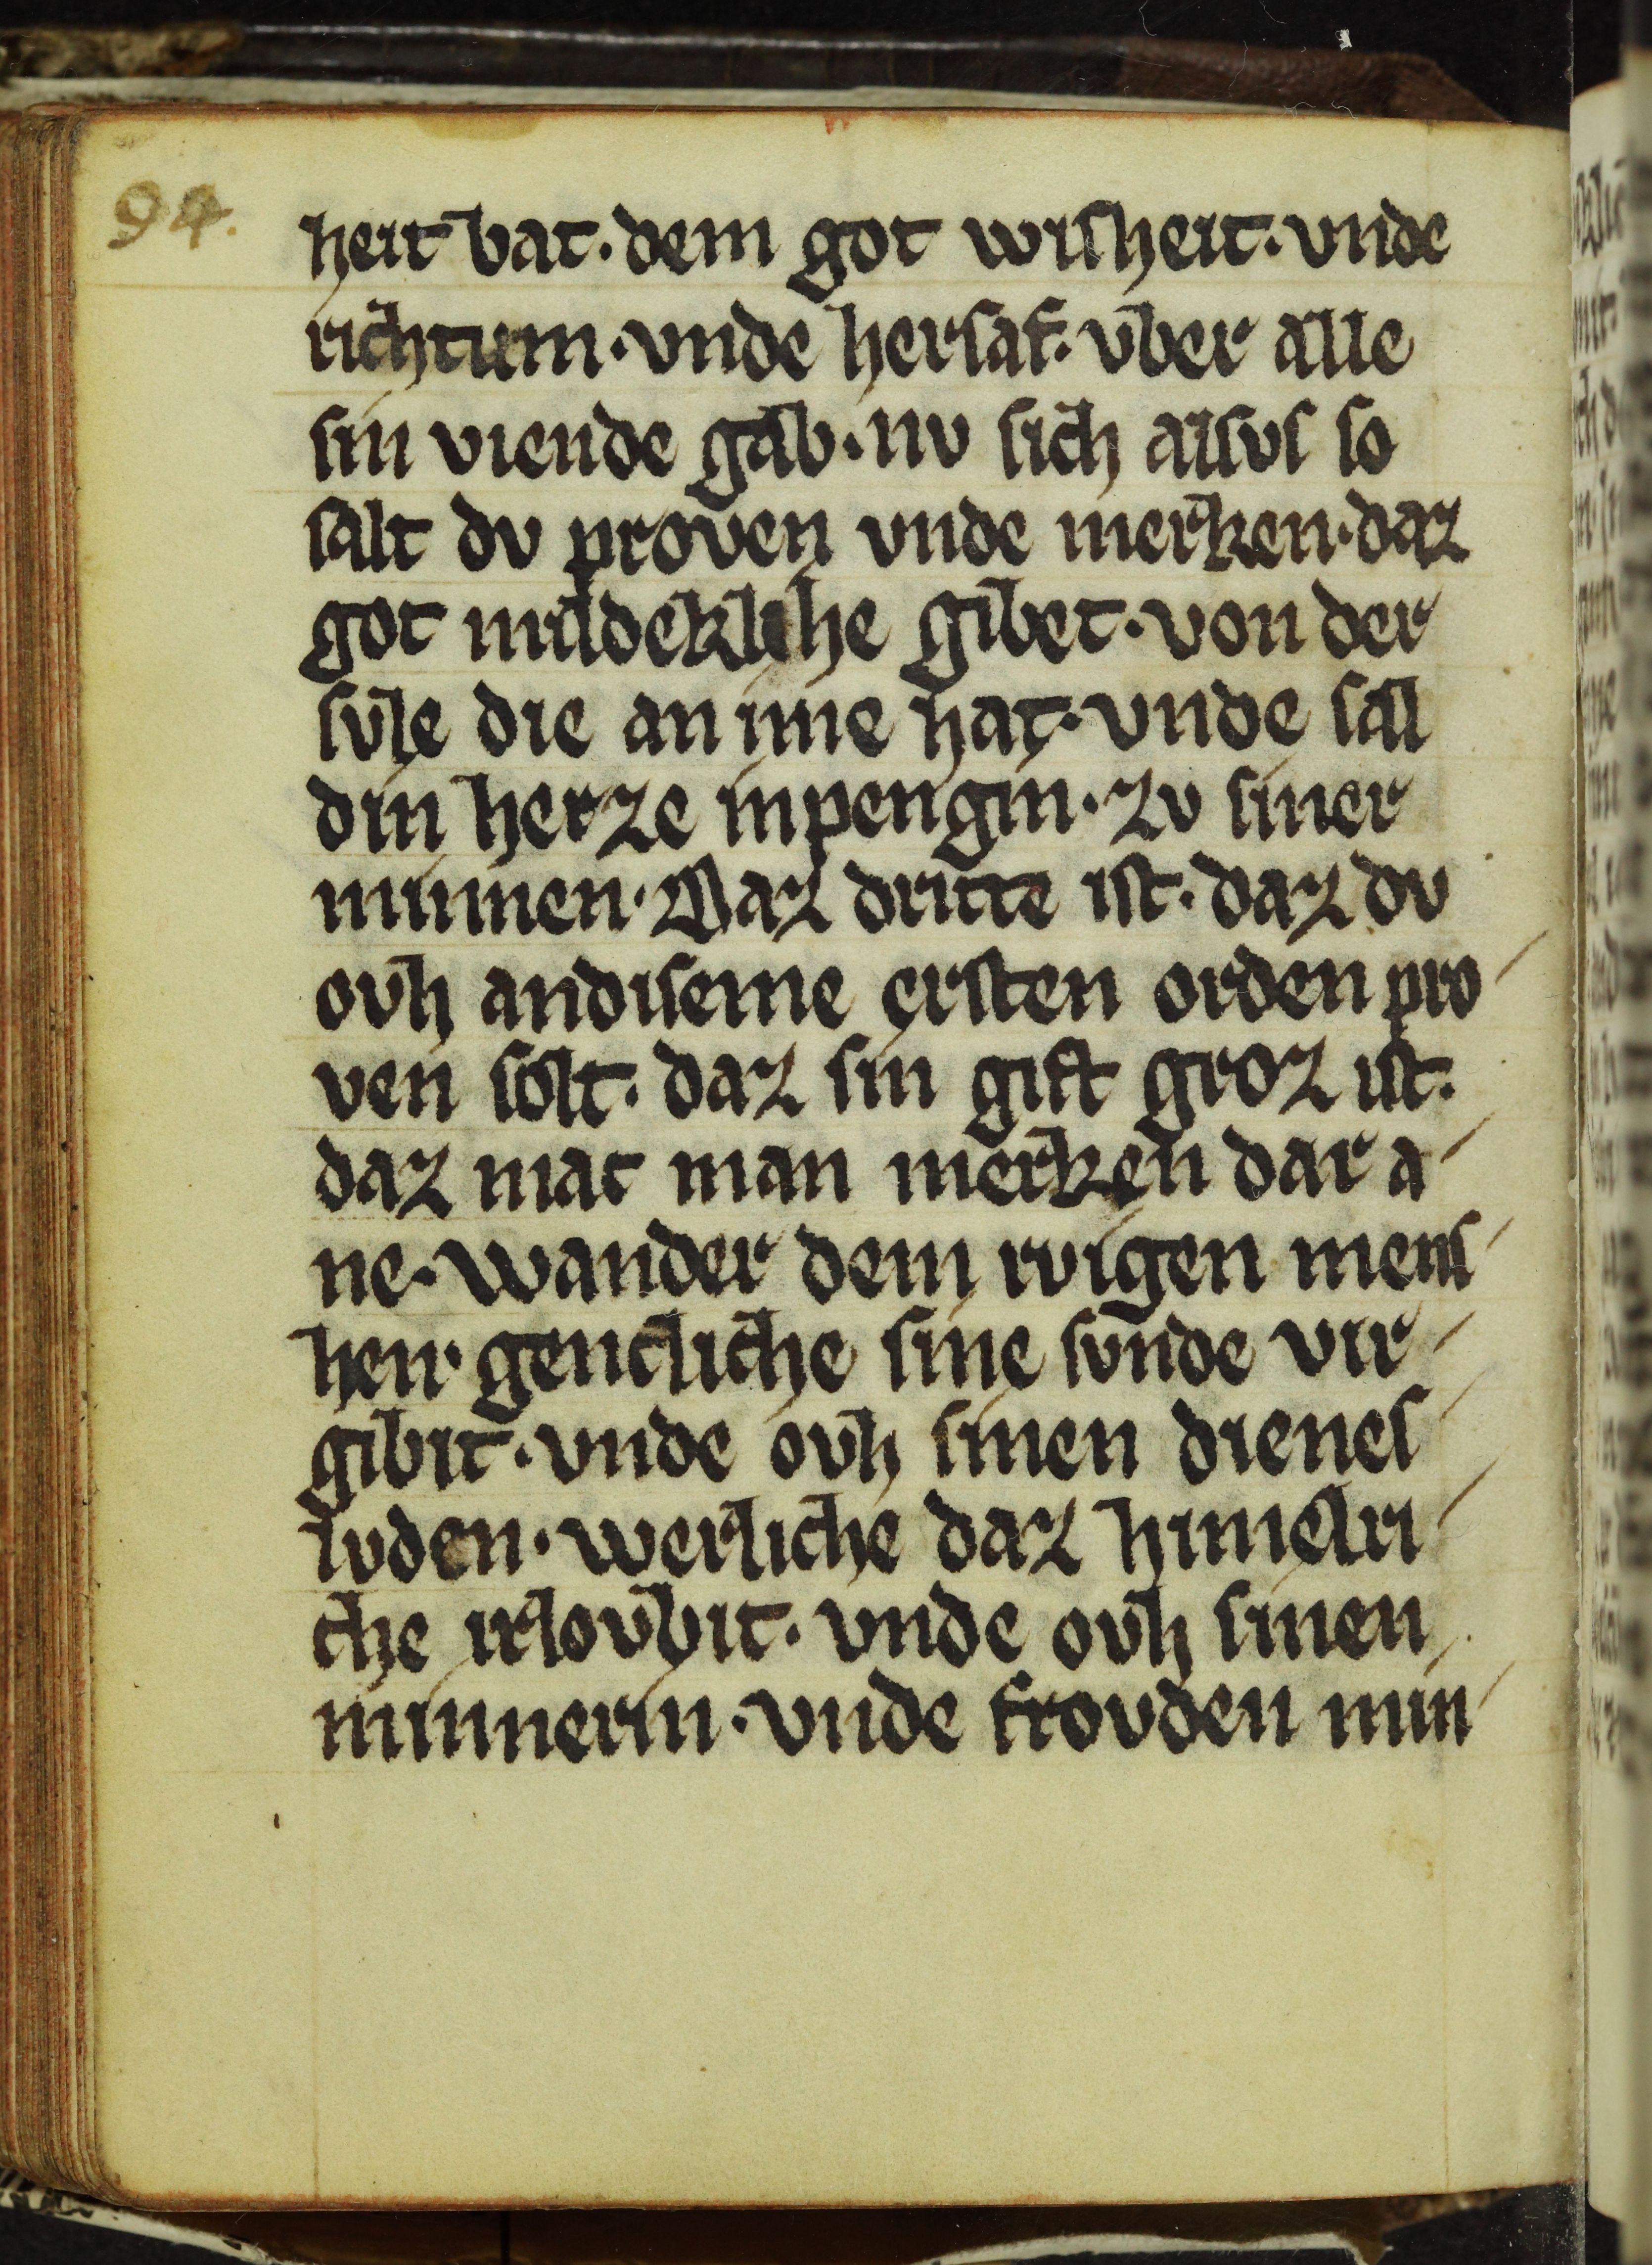 94.
heit bat. dem got wisheit. vnde
richtum. vnde hersaf. vber alle
sin viende gab. nv sich alsvs so
salt dv proven vnde merken. daz
got mildekliche gibet. von der
svle die an ime hat. vnde sal
din herze inpengin. zv siner
minnen. Daz dritte ist. daz dv
ovh andiseme ersten orden pro
ven solt. daz sin gift groz ist.
daz mac man merken dar a
ne. wander dem rvigen mens
hen. gencliche sine svnde vir
gibit. vnde ovh sinen dienes
lvden. werliche daz himelri
che irlovbit. vnde ovh sinen
minnerin. vnde frovden min